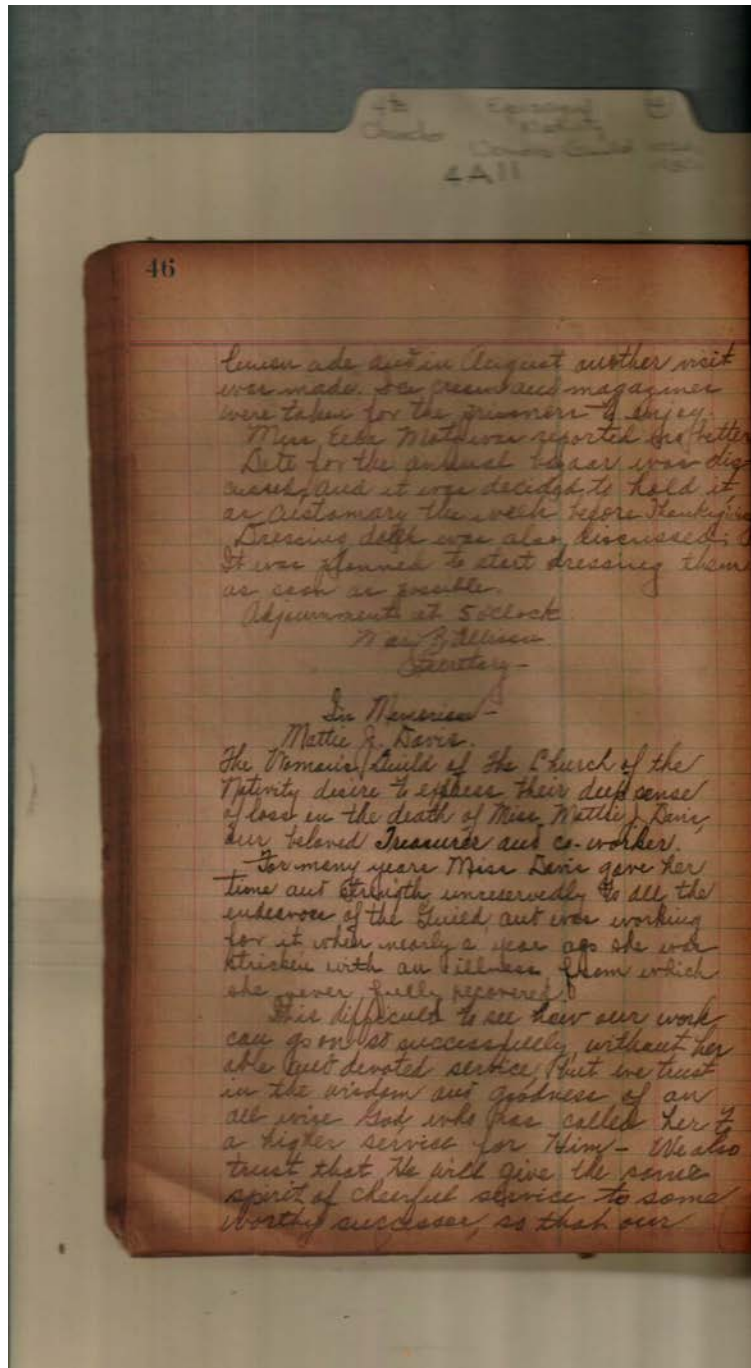 Episcopal
Nativity
Womans Guild
4A11
46
lemon ade and in August another visit
was made. Ice cream and magazines
were taken for the prisoners to enjoy.
Miss was reported no better
Date for the annual bazaar was dis
cussed, and it was decided to hold it,
as customary the week before Thanksgiving
Dressing dolls was also discussed.
It was planned to start dressing them
as soon as possible.
Adjournment at 5 oclock
Mary B. Allison
Secretary—
In Memoriam—
Mattie J. Davis.
The Woman's Guild of the Church of the
Nativity desire to express their deep sense
of loss in the death of Miss Mattie J. Davis,
our beloved Treasurer and co-worker.
For many years Miss Davis gave her
time and strength unreservedly to all the
endeavors of the Guild, and was working
for it when nearly a year ago she was
stricken with an illness, from which
she never fully recovered.
It is difficult to see how our work
can go on so successfully, without her
able and devoted service, but we trust
in the wisdom and goodness of an
all wise God, who has called her to
a higher service for Him— We also
trust that He will give the same
spirit of cheerful service to some
worthy successor, so that our